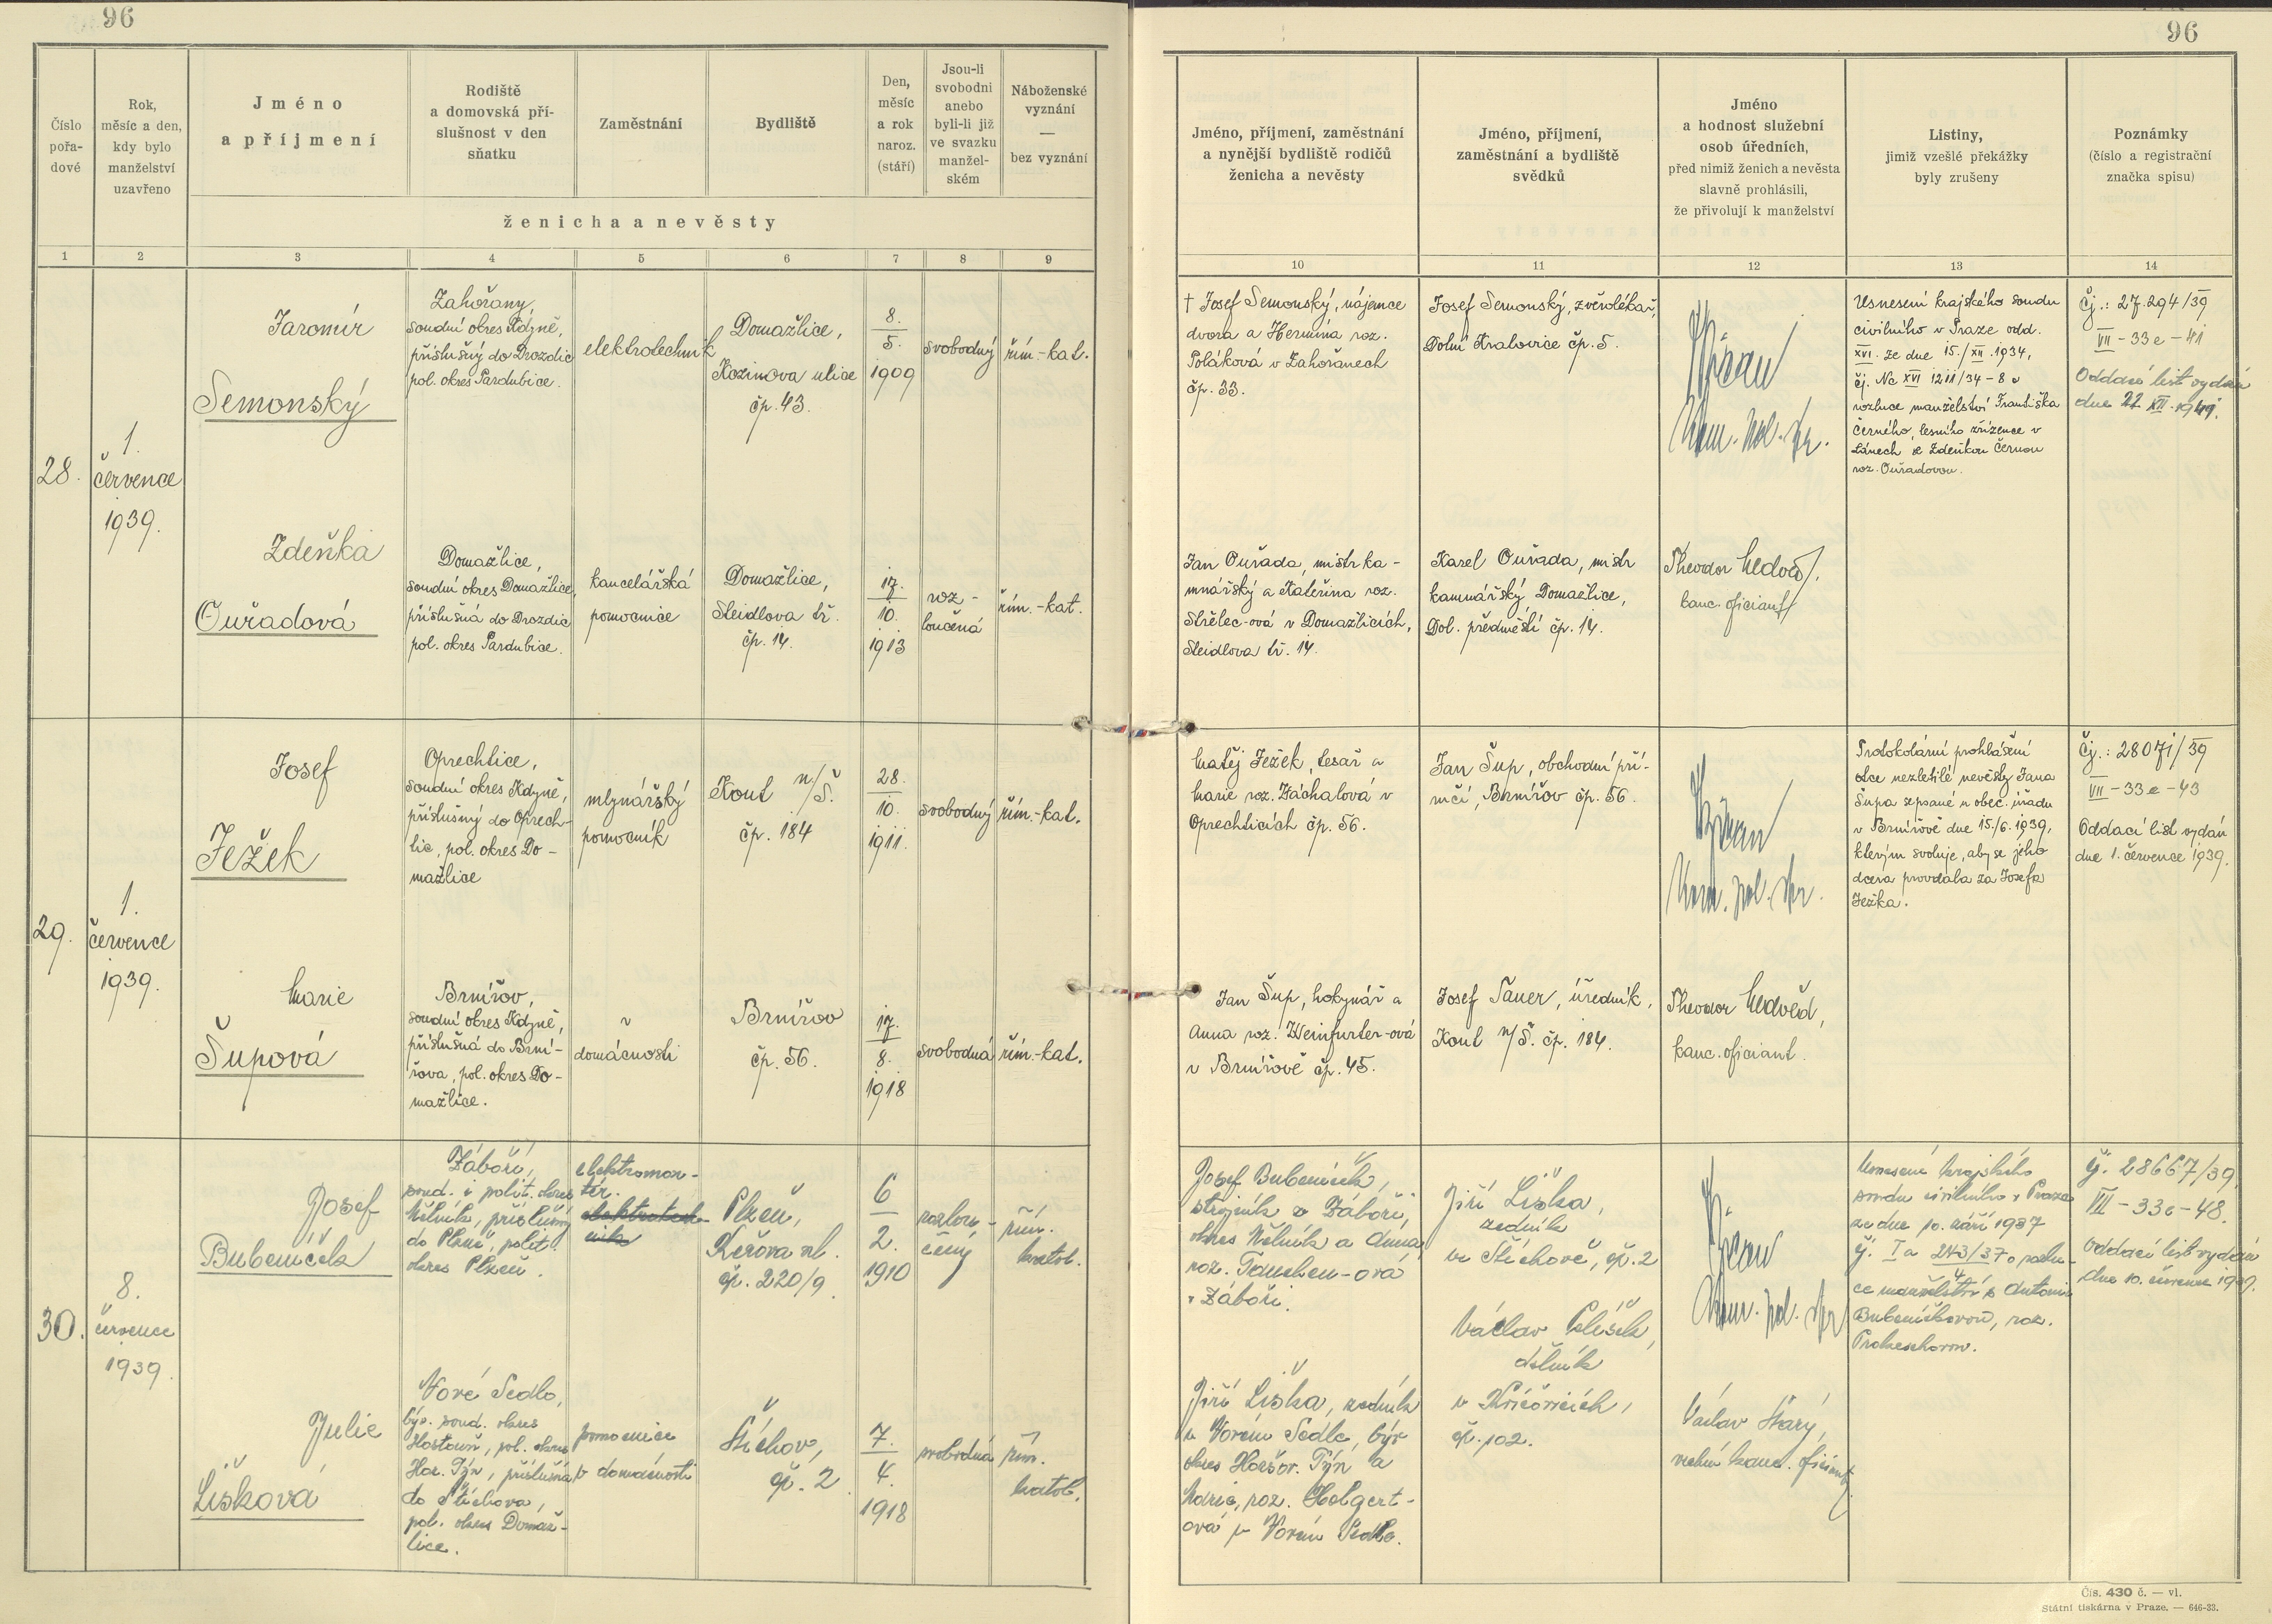 96
96
Číslo
pořa-
dové
Rok,
měsíc a den,
kdy bylo
manželství
uzavřeno
Jméno
a příjmení
Rodiště
a domovská pří-
slušnost v den
sňatku
Zaměstnání
Bydliště
Den,
měsíc
a rok
naroz.
(stáří)
Jsou-li
svobodni
anebo
byli-li již
ve svazku
manžel-
ském
Náboženské
vyznání
—
bez vyznání
ženicha a nevěsty
Jméno, příjmení, zaměstnání
a nynější bydliště rodičů
ženicha a nevěsty
Jméno, příjmení,
zaměstnání a bydliště
svědků
Jméno
a hodnost služební
osob úředních,
před nimiž ženich a nevěsta
slavně prohlásili,
že přivolují k manželství
Listiny,
jimiž vzešlé překážky
byly zrušeny
Poznámky
(číslo a registrační
značka spisu)
1 2 3 4 5 6 7 8 9
10 11 12 13 14
28.
1.
července
1939.
Jaromír
Semonský
Zahořany,
soudní okres Kdyně,
příslušný do Drozdic
pol. okres Pardubice.
elektrotechnik
Domažlice,
Kozinova ulice
čp. 43.
8.
5.
1909
svobodný
řím.-kat.
† Josef Semonský, nájemce
dvora a Hermína roz.
Poláková v Zahořanech
čp. 33.
Josef Semonský, zvěrolékař,
Dolní Kralovice čp. 5.
kom. pol. spr.
Usnesení krajského soudu
civilního v Praze odd.
XVI. ze dne 15./XII.1934,
čj. Nc XVI 1211/34-8 o
rozluce manželství Františka
Černého, lesního zřízence v
Lánech se Zdeňkou Černou
roz. Ouřadovou.
Čj.: 27.294/39
VII-33e-41
Oddací list vydán
dne 22 XII. 1941.
Zdeňka
Ouřadová
Domažlice,
soudní okres Domažlice,
příslušná do Drozdic
pol. okres Pardubice.
kancelářská
pomocnice
Domažlice,
Steidlova tř.
čp. 14.
17.
10.
1913
roz-
loučená
řím.-kat.
Jan Ouřada, mistr ka-
mnářský a Kateřina roz.
Střelec-ová v Domažlicích,
Steidlova tř. 14.
Karel Ouřada, mistr
kamnářský Domažlice,
Dol. předměstí čp. 14.
Theodor Medvěd,
kanc. oficiant
29.
1.
července
1939.
Josef
Ježek
Oprechtice,
soudní okres Kdyně,
příslušný do Oprech-
tic, pol. okres Do-
mažlice
mlynářský
pomocník
Kout n/Š.
čp. 184
28.
10.
1911.
svobodný
řím.-kat.
Matěj Ježek, tesař a
Marie roz. Záchalová v
Oprechticích čp. 56.
Jan Šup, obchodní pří-
ručí, Brnířov čp. 56.
kom. pol. spr.
Protokolární prohlášení
otce nezletilé nevěsty Jana
Šupa sepsané u obec. úřadu
v Brnířově dne 15./6. 1939,
kterým svoluje, aby se jeho
dcera provdala za Josefa
Ježka.
Čj.: 28071/39
VII-33e-43
Oddací list vydán
dne 1. července 1939.
Marie
Šupová
Brnířov,
soudní okres Kdyně,
příslušná do Brní-
řova, pol. okres Do-
mažlice.
v
domácnosti
Brnířov
čp. 56.
17.
8.
1918
svobodná
řím.-kat.
Jan Šup, hokynář a
Anna roz. Weinfurter-ová
v Brnířově čp. 45.
Josef Pauer, úředník,
Kout n/Š. čp. 184.
Theodor Medvěd,
kanc. oficiant.
30.
8.
července
1939.
Josef
Bubeníček
Záboří,
soud. i polit. okres
Mělník, příslušný
do Plzně, polit.
okres Plzeň.
elektromon-
tér.
elektrotech-
nik
Plzeň,
čp. 220/9
6
2.
1910
rozlou-
čený
řím.
katol.
Josef Bubeníček,
strojník v Záboří,
okres Mělník a Anna
roz. Tauchen-ová
v Záboří.
Jiří Liška,
zedník
ve Štichově, čp. 2
Václav
dělník
čp. 102.
kom. pol. spr.
Usnesení krajského
soudu civilního v Praze
ze dne 10. září 1937
čj. Ia 243/37 o rozlu-
4
ce manželství s Antonií
Bubeníčkovou, roz.
čj. 28667/39,
VII-33e-48.
Oddací list vydán
dne 10. července 1939.
Julie
Lišková
Nové Sedlo,
býv. soud. okres
Hostouň, pol. okres
Hor. Týn, příslušná
do Štichova,
pol. okres Domaž-
lice.
pomocnice
v domácnosti
Štichov,
čp. 2
7.
4.
1918
svobodná
řím.
katol.
Jiří Liška, zedník
v Novém Sedle, býv
okres Horšov. Týn a
Marie, roz. Holgert-
ová v Novém Sedle.
Václav Starý,
kanc. oficiant
Čís. 430 č. — vl.
Státní tiskárna v Praze. — 646-33.